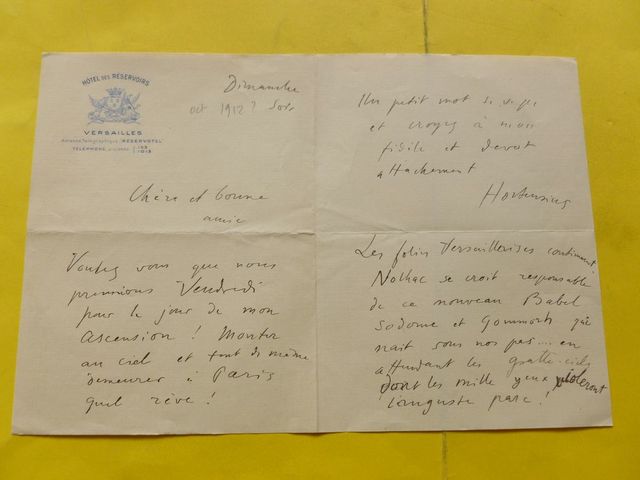 HÔTEL DES RÉSERVOIRS
VERSAILLES
Adresse Télégraphique: RESERVOTEL
TÉLÉPHONE
Dimanche
oct 1912? Soir
Chère et bonne
amie
Voulez vous que nous
prennions Vendredi
pour le jour de mon
ascension! Monter
au ciel et tout de même
demeurer à Paris
quel rêve!
Un petit mot s.v.p.
et croyez à mon
fidèle et dévot
attachement
Hortensius
Les folies Versaillerises continuent
Nolhac se croit responsable
de ce nouveau Babel
Sodome et Gommorh qui
nait sous nos pas... en
attendant les gratte-ciels
dont les mille yeux violeront
l'auguste parc!